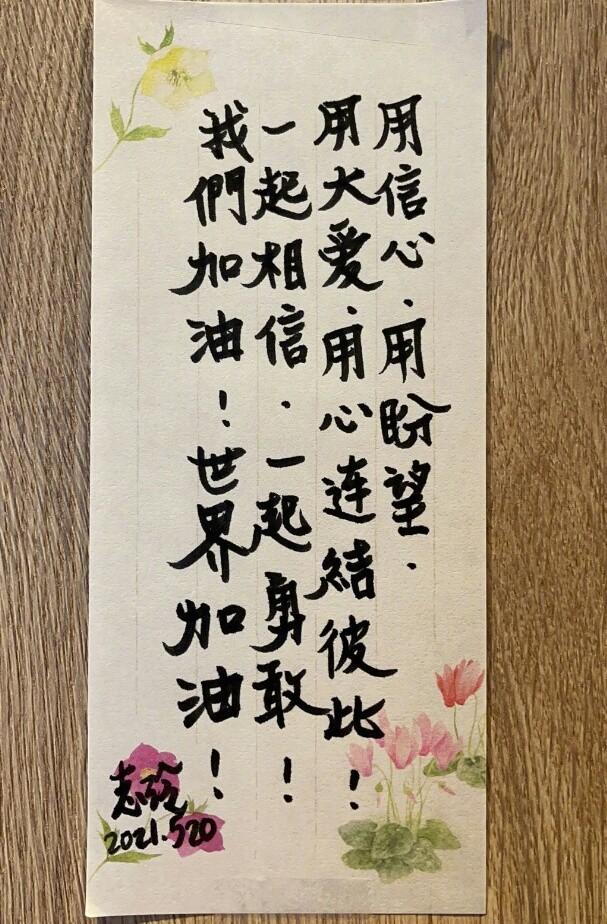 用信心.用盼望.
用大爱.用心连結彼此!
一起相信.一起勇敢!
我們加油!世界加油!
志玲
2021.520